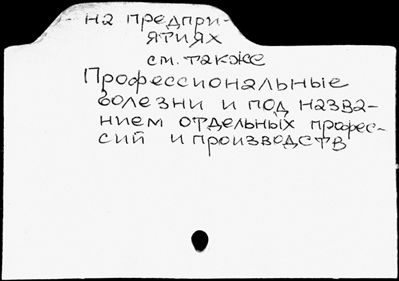 на предпри-
ятиях
см. также
Профессиональные
болезни и под назва-
нием отдельных профес-
сий и производств